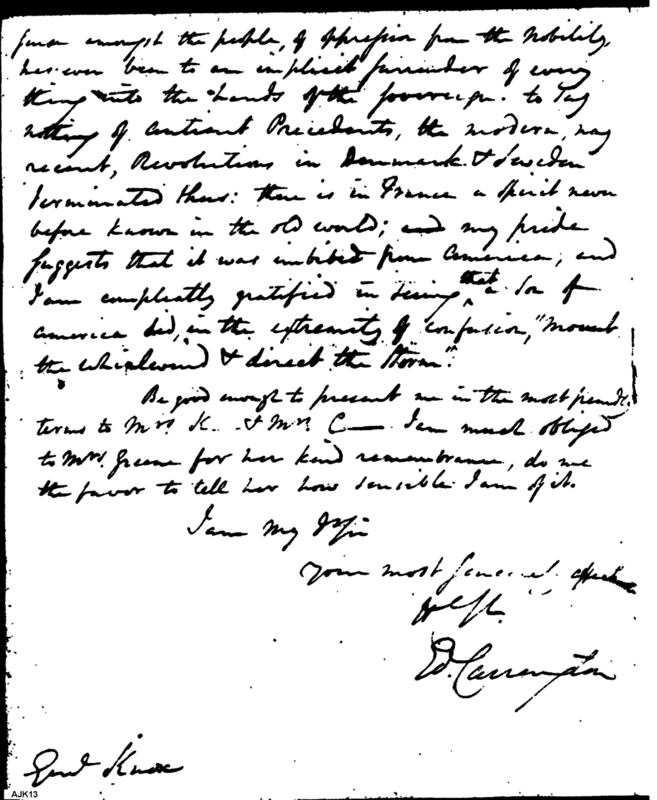 sense amongst the people, of oppression from the Nobility,
has ever been to an implicit surrender of every
thing into the hands of the sovereign. to say
nothing of antient Precedents, the modern, nay
recent, Revolutions in Denmark & Sweden
terminated thus: there is in France a spirit never
before known in the old world; and my pride
suggests that it was imbibed from America; and
I am compleatly gratified in seeing that a Son of
America did, in the extremity of confusion, "mount
the whirlwind & direct the Storm".
Be good enough to present me in the most friendly
terms to Mrs. K. & Mrs. C— I am much obliged
to Mrs. Greene for her kind remembrance, do me
the favor to tell her how sensible I am of it.
I am My Dr Sir
Your most
Ed. Carrington
Genl Knox
AJK13